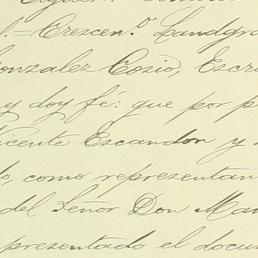 º.= Crescenº. Landgra
onzalez Cosio, Escri
y doy fé: que por p
icente Escandon y
o, como representan
del Señor Don Man
presentado el docu